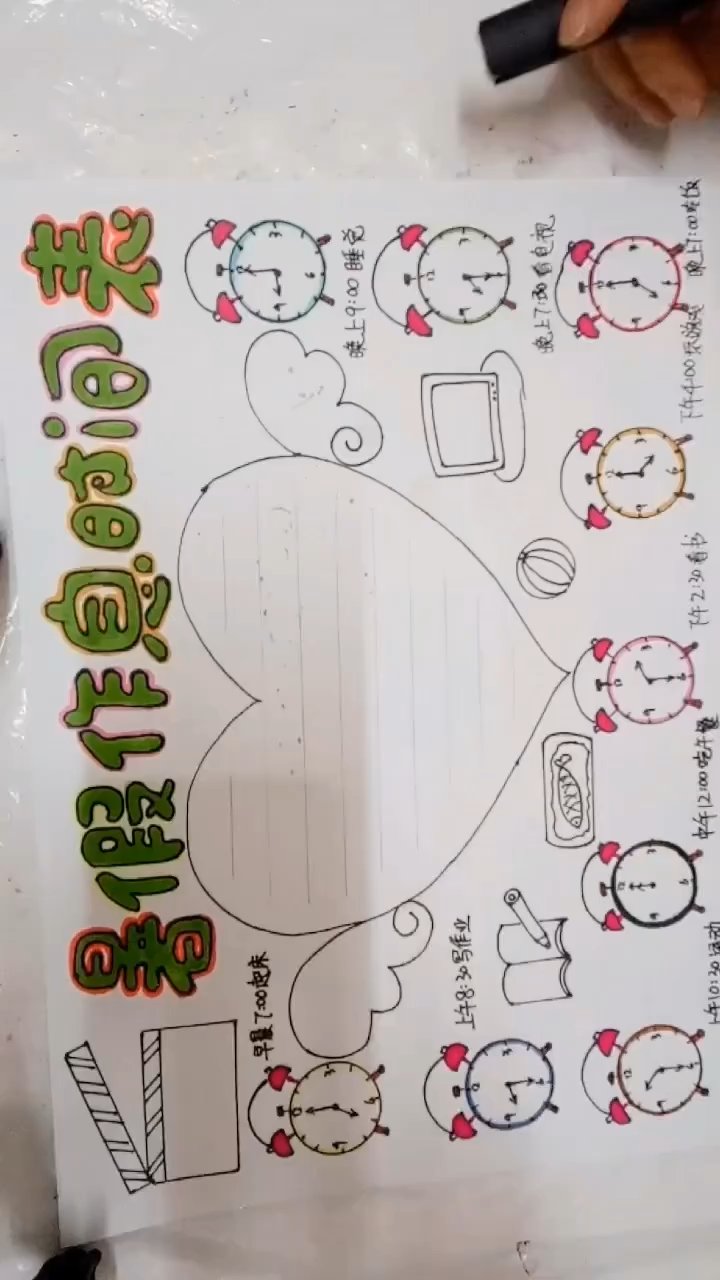 暑假作息时间表
早晨7:00起床
上午8:30写作业
上午10:30运动
中午12:00吃午餐
下午2:30看书
下午4:00玩游戏
晚上7:00吃饭
晚上7:30看电视
晚上9:00睡觉